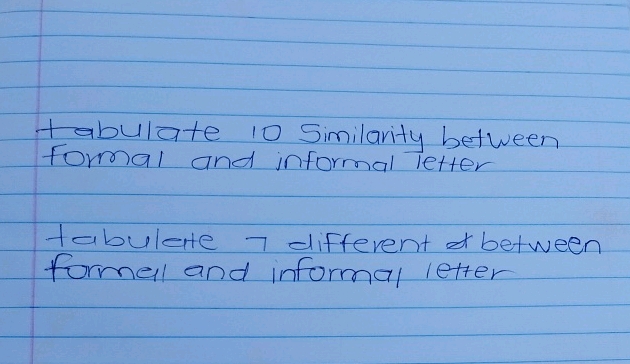 tabulate 10 Similarity between
formal and informal letter
tabulate 7 different between
formal and informal letter